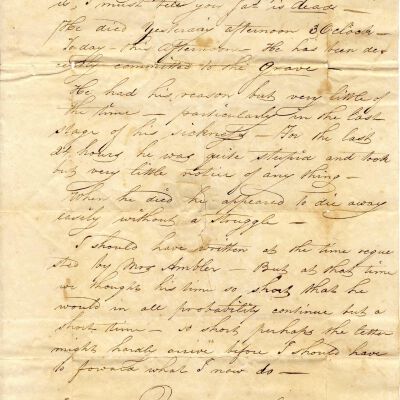 is, I must tell you Jas is dead –
He died Yesterday afternoon 3 OClock –
Today – this Afternoon – He has been de
cently committed to the Grave
He had his reason but very little of
the time – particularly in the last
stage of his sickness – For the last
24 hours he was quite stupid and took
but very little notice of any thing –
When he died he appeared to die away
easily without a struggle –
I should have written at the time reque
sted by Mrs Ambler – But at that time
we thought his time so short that he
would in all probability continue but a
short time – so short perhaps the letter
might hardly arrive before I should have
to forward what I now do –